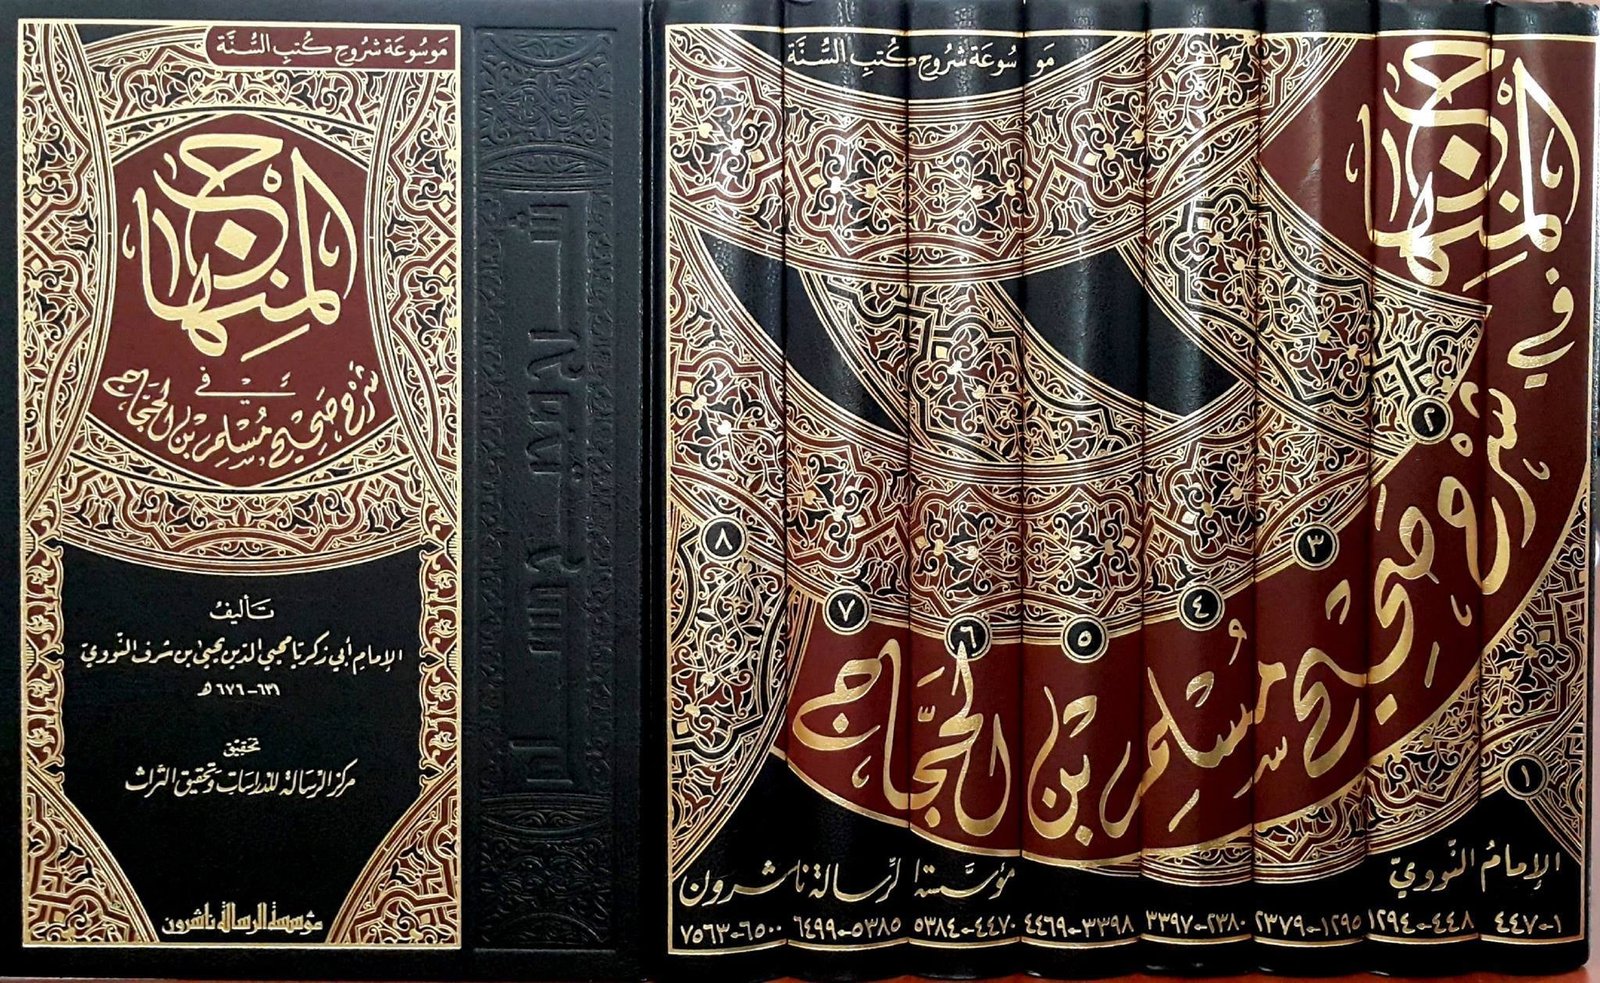 موسوعة شروح كتب السُّنَّة
المنهاج
في
شرح صحيح مسلم بن الحجاج
تأليف
الإمام أبي زكريا محيي الدين يحيى ابن شرف النَّوويّ
٦٣١-٦٧٦ هـ
تحقيق
مركز الرسالة للدراسات وتحقيق التراث
مؤسسة الرسالة ناشرون
موسوعة شروح كتب السُّنَّة
المنهاج
في
شرح صحيح مسلم بن الحجاج
١
٢
٣
٤
٥
٦
٧
٨
الإمام النَّوويّ
مؤسَّسة الرسالة ناشرون
١-٤٤٧
٤٤٨-١٢٩٤
١٢٩٥-٢٣٧٩
٢٣٨٠-٣٣٩٧
٣٣٩٨-٤٤٦٩
٤٤٧٠-٥٣٨٤
٥٣٨٥-٦٤٩٩
٦٥٠٠-٧٥٦٣